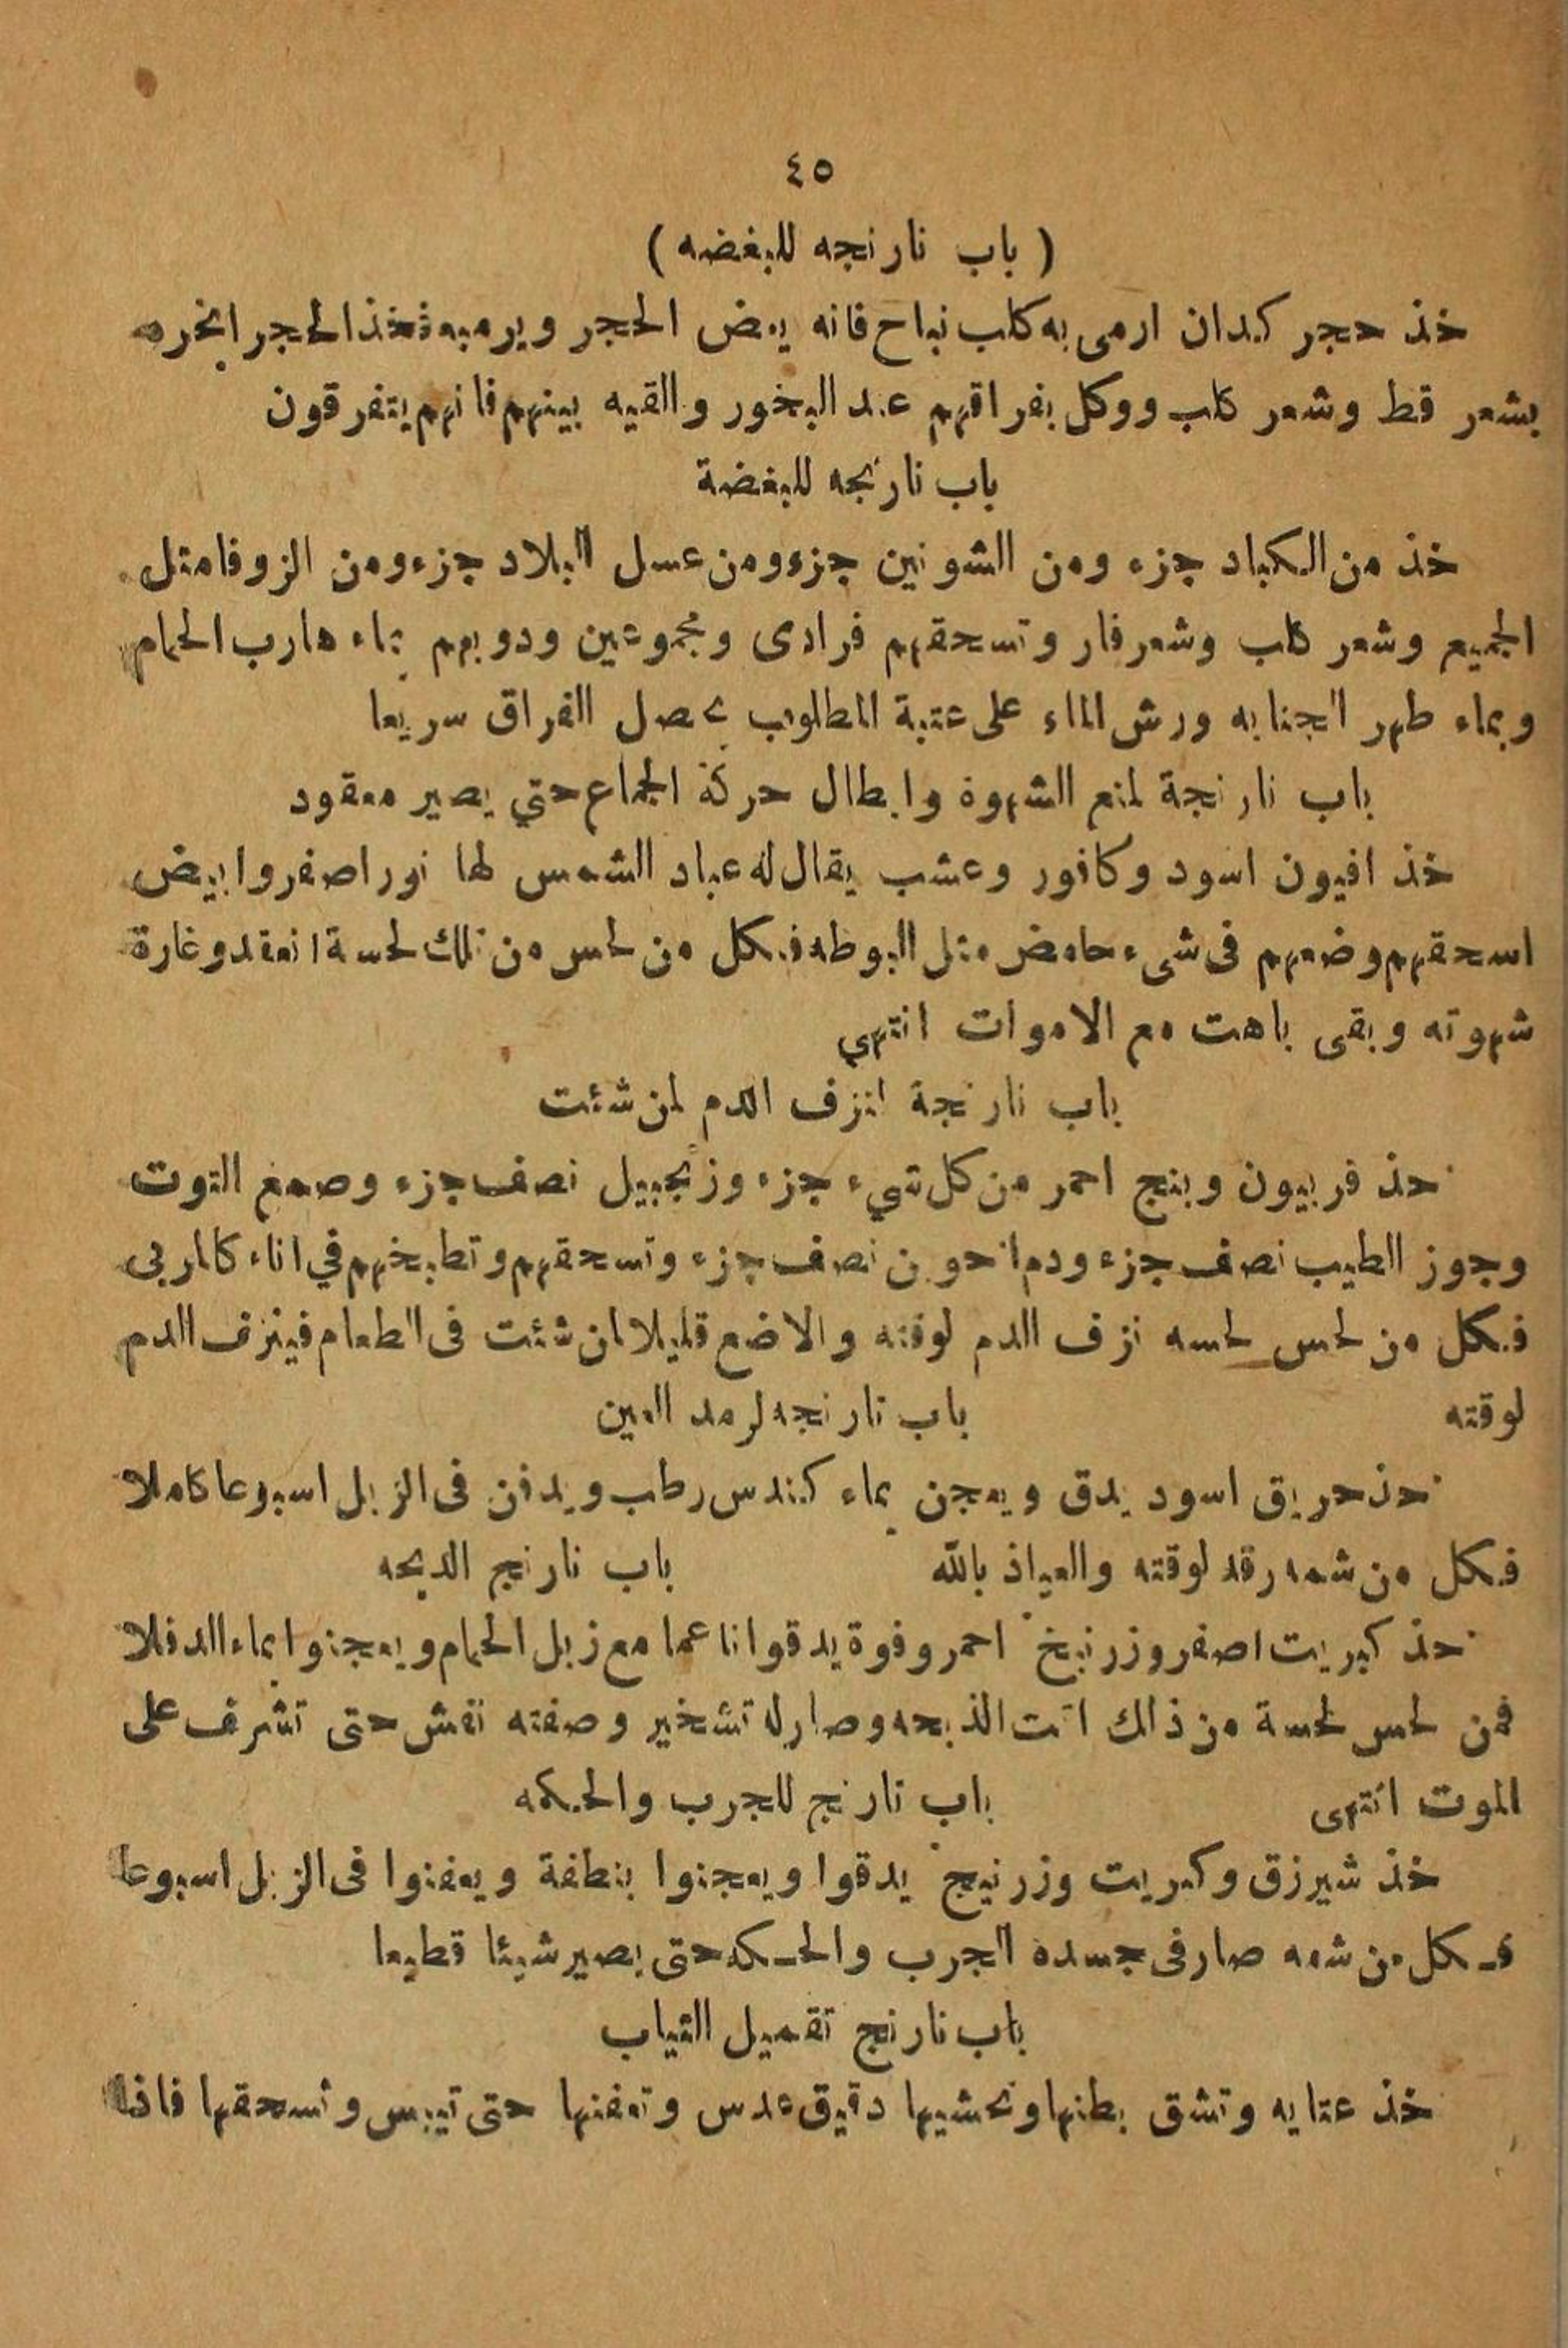 ٤٥
( باب نارنجه للبغضه )
خذ حجر كدان ارمى به كلب نباح فانه يعض الحجر ويرميه فخذ الحجر ابخره
بشعر قط وشعر كلب ووكل بفراقهم عند البخور والقيه بينهم فانهم يتفرقون
باب نارنجه للبغضة
خذ من الكباد جزء ومن الشونين جزء ومن عسل البلاد جزء ومن الزوفا مثل
الجميع وشعر كلب وشعر فار وتسحقهم فرادى ومجموعين ودوبهم بماء هارب الحمام
وبماء طهر الجنابه ورش الماء على عتبة المطلوب يحصل الفراق سريعا
باب نارنجة لمنع الشهوة وابطال حركة الجماع حتي يصير معقود
خذ افيون اسود وكافور وعشب يقال له عباد الشمس لها نور اصفر وابيض
اسحقهم وضعهم فى شىء حامض مثل البوظه فكل من لحس من تلك لحسة انعقد وغارة
شهوته وبقى باهت مع الاموات انتهي
باب نارنجة لنزف الدم لمن شئت
خذ فربيون وبنج احمر من كل شيء جزء وزنجبيل نصف جزء وصمغ التوت
وجوز الطيب نصف جزء ودم اخوين نصف جزء وتسحقهم وتطبخهم في اناء كالمربى
فكل من لحس لحسه نزف الدم لوقته والا ضع قليلا لمن شئت فى الطعام فينزف الدم
لوقته باب نارنجه لرمد العين
خذ حريق اسود يدق ويعجن بماء كندس رطب ويدفن فى الزبل اسبوعا كاملا
فكل من شمه رقد لوقته والعياذ بالله باب نارنج الدبحه
خذ كبريت اصفر وزرنيخ احمر وفوة يدقوا ناعما مع زبل الحمام ويعجنوا بماء الدفلا
فمن لحس لحسة من ذلك اتت الذبحه وصار له تشخير وصفته نقش حتى تشرف على
الموت انتهى باب نارنج للجرب والحكه
خذ شيرزق وكبريت وزرنيج يدقوا ويعجنوا بنطفة ويعفنوا فى الزبل اسبوعا
فكل من شمه صار فى جسده الجرب والحكه حتى يصير شيئا قطيعا
باب نارنج تقميل الثياب
خذ عتايه وتشق بطنها وتحشيها دقيق عدس وتعفنها حتى تيبس وتسحقها فاذا